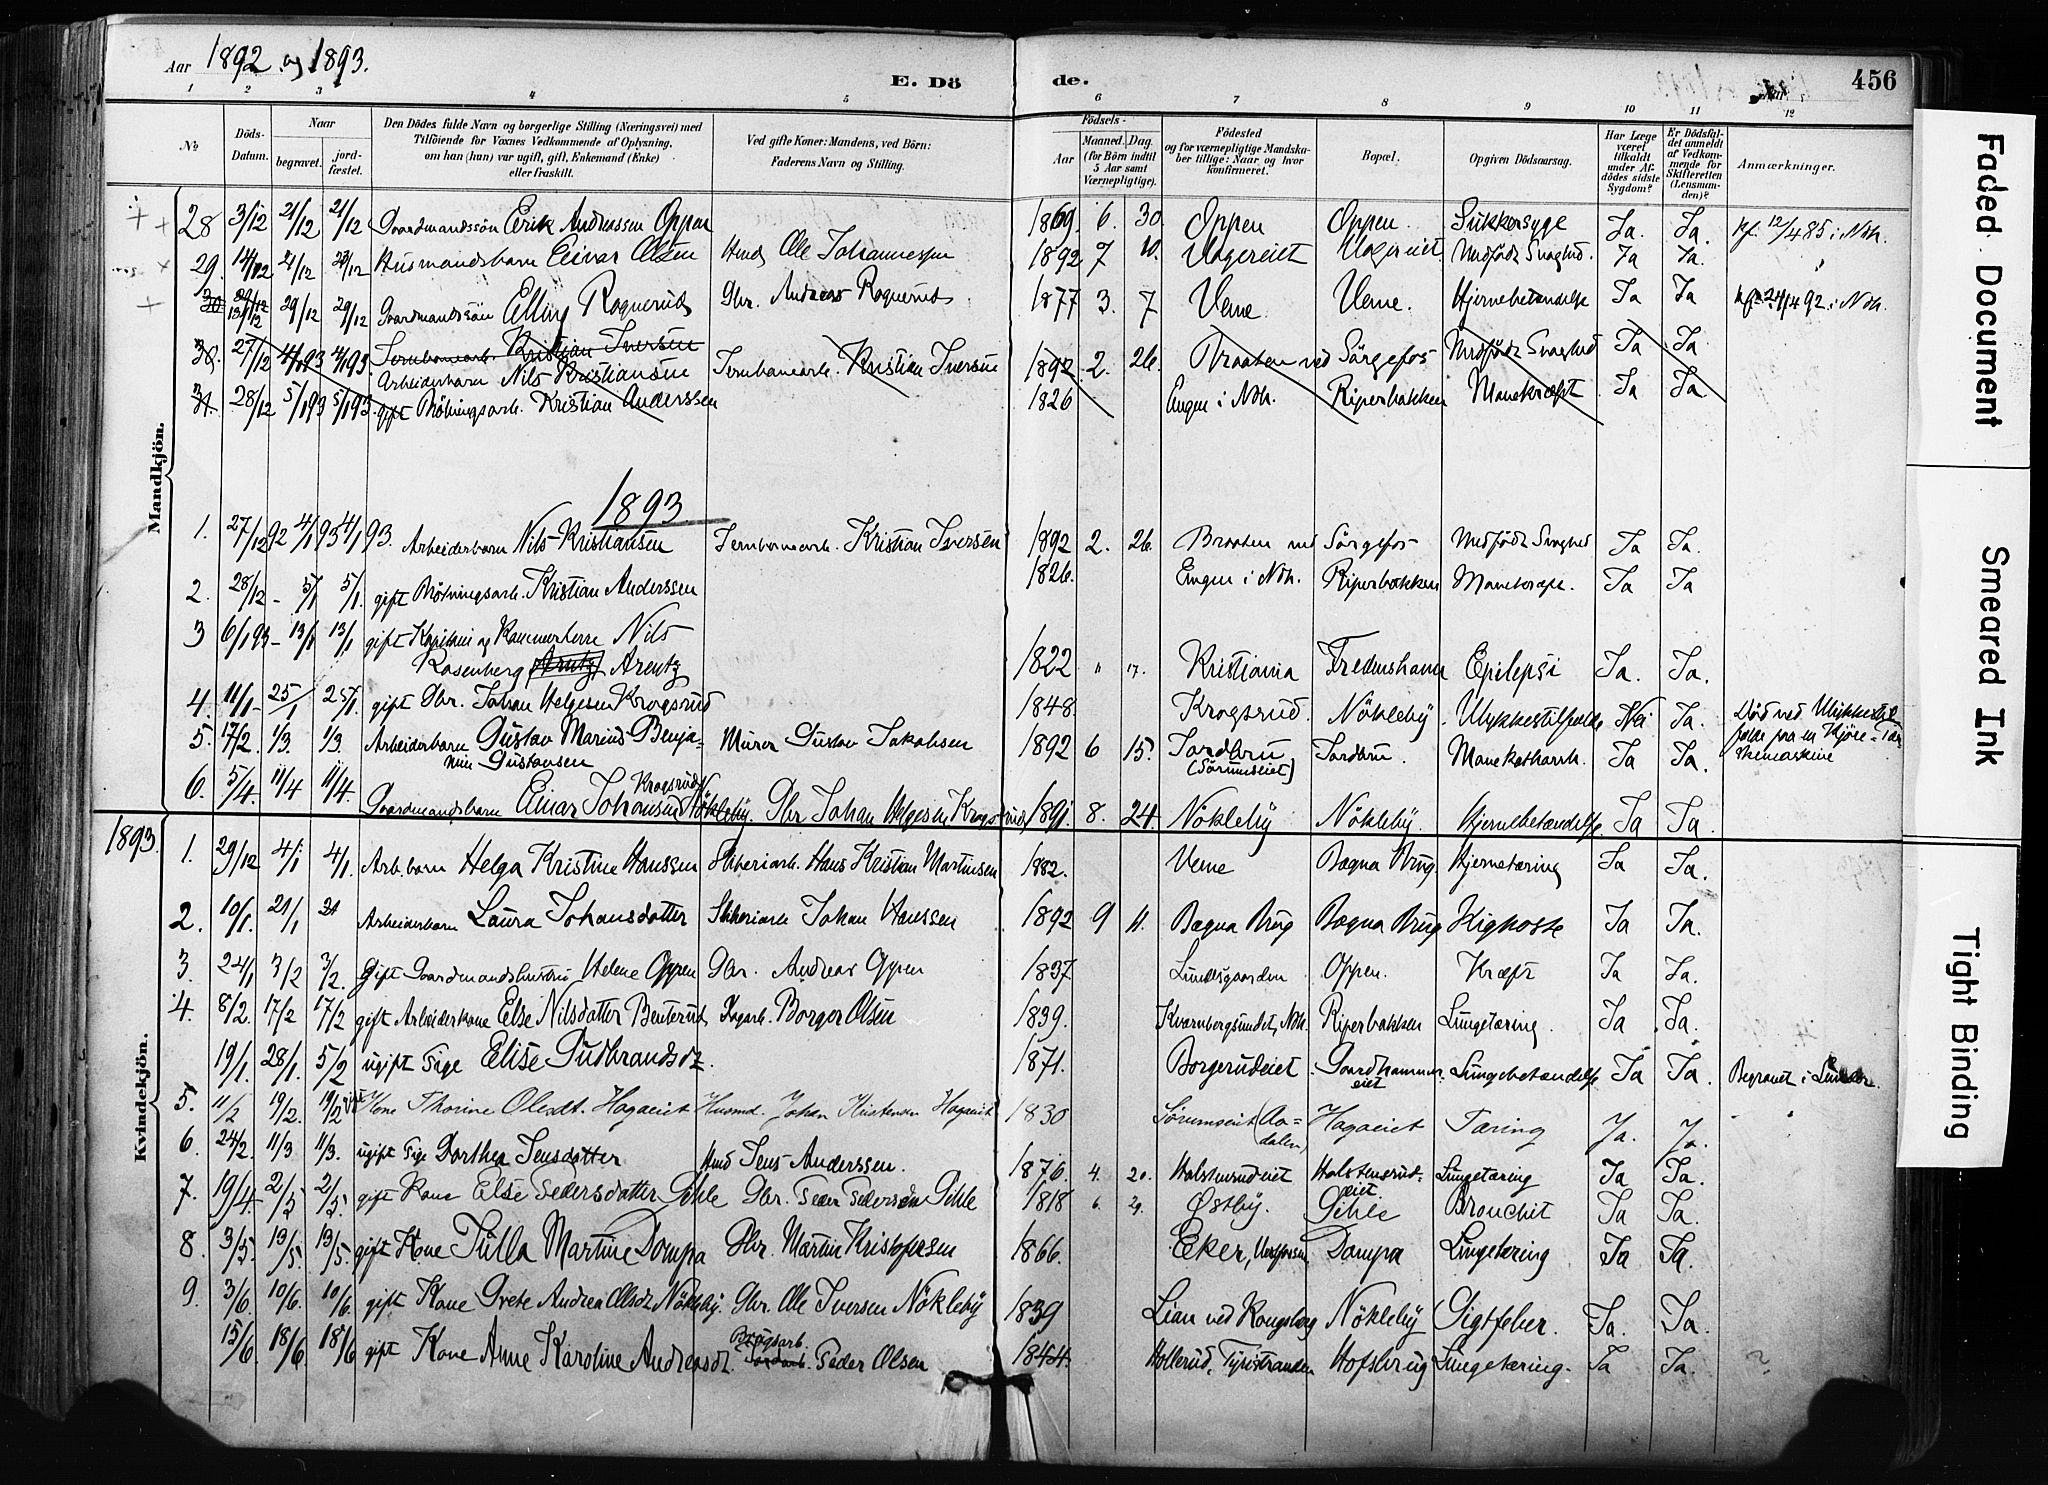 Aar 1892 og 1893.
E. Dö de.
456
1 2 3 4 5 6 7 8 9 10 11 12
No.
Döds-Datum.
Naar
begravet.
jord-fæstet.
Den Dödes fulde Navn og borgerlige Stilling (Næringsvei) med
Tilföiende for Voxnes Vedkommende af Oplysning,
om han (hun) var ugift, gift, Enkemand (Enke)
eller fraskilt.
Ved gifte Koner: Mandens, ved Börn:
Faderens Navn og Stilling.
Födsels-
Aar Maaned. Dag.
(for Börn indtil
5 Aar samt
Værnepligtige).
Födested
og for værnepligtige Mandska-
ber tillige: Naar og hvor
konfirmeret.
Bopæl.
Opgiven Dödsaarsag.
Har Læge
været
tilkaldt
under Af-
dödes sidste
Sygdom?
Er Dödsfal-
det anmeldt
af Vedkom-
mende for
Skifteretten
(Lensman-
den)?
Anmærkninger.
Mandkjön.
28 3/12 21/12 21/12 Gaardmandssön Erik Andreassen Oppen 1869 6. 30. Oppen Oppen Sukkersyge Ja. Ja. kf. 12/4 85 i Ndh.
29. 14/12 21/12 Husmandsbarn Einar Olsen Hmd Ole Johannessen 1892 7 Medfödt Svaghed. Ja Ja.
30 29/12 29/12 Gaardmandssön Elling Roquerud Gbr. Andreas Roquerud 1877 3. 7 Veme Veme. Hjernebetændelse Ja Ja kf. 24/4 92 i Ndh.
30. 27/12 4/1 93 4/1 93 Jernbanearb. Kristian Iversen
Arbeiderbarn Nils Kristiansen Jernbanearb. Kristian Iversen 1892 2. 26. Braaten ved Sörgefos Medfödt Svaghed Ja Ja
31. 28/12 5/1 93 5/1 93. gift Flötningsarb. Kristian Anderssen 1826 Engen i Ndh. Riperbakken Mavekræft Ja Ja
1893
1. 27/12 92 4/1 93 4/1 93. Arbeiderbarn Nils Kristiansen Jernbanearb. Kristian Iversen 1892 2. 26. Braaten ved Sörgefos Medfödt Svaghed Ja Ja.
2. 28/12 - 5/1 5/1. gift Flötningsarb. Kristian Anderssen 1826. Engen i Ndh. Riperbakken Mavekræft. Ja Ja
3 6/1 93 - 13/1 13/1 gift Kaptein og Kammerherre Nils
Rosenberg Arntz Arentz 1822 " 17. Kristiania Fredenshavn Epilepsi Ja. Ja.
4. 11/1 - 25/1 25/1. gift Gbr. Johan Helgesen Krogsrud 1848. Krogsrud. Nökleby. Ulykkestilfælde Nei Ja. Död ved Ulykkestil-
fælde paa en Kjöre-
5. 17/2. 1/3. 1/3. Arbeiderbarn Gustav Marius Benja-
min Gustavsen Murer Gustav Jakobsen 1892 6 15. Jordbru
(Sörumseiet) Jordbru. Mavekatharrh. Ja Ja.
6. 5/4. 11/4 11/4. Gaardmandsbarn Einar Johansen Krogsrud Nökleby. Gbr Johan Helgesen Krogsrud 1891. 8. 24. Nökleby Nökleby. Hjernebetændelse. Ja Ja.
1893.
Kvindekjön.
1. 29/12 4/1 4/1. Arb.barn Helga Kristine Hanssen Sliberiarb. Hans Kristian Martinsen 1882. Veme Bægna Brug. Hjernetæring Ja Ja.
2. 10/1. 21/1 21 Arbeiderbarn Laura Johansdatter Sliberiarb Johan Hanssen 1892 9 11. Bægna Brug Bægna Brug Kighoste Ja Ja.
3. 24/1 3/2 3/2. Gift Gaardmandshustru Helene Oppen Gbr. Andreas Oppen 1837. Lundesgaarden Oppen. Kræft Ja Ja.
4. 8/2. 17/2 17/2 gift Arbeiderkone Else Nilsdatter Benterud Dagarb. Borger Olsen 1839. Kvernbergsundet, Ndh. Riperbakken Lungetæring. Ja Ja.
19/1. 28/1. 5/2 ugift Pige Elise Gudbrandsdt. 1871. Borgerudeiet Gaardhammer-
eiet Lungebetændelse Ja Ja. Begravet i Lunder.
5. 11/2 19/2. 19/2 gift Kone Thorine Olesdt. Hagaeiet Husmd. Johan Kristensen Hagaeiet 1830 Sörumseiet (Aa-
dalen) Hagaeiet Tæring Ja. Ja.
6. 24/2. 11/3 11/3. ugift Pige Dorthea Jensdatter Hmd Jens Anderssen. 1876. 4. 20. Holstensrudeiet Holstensrud-
eiet. Lungetæring Ja Ja.
7. 19/4. 2/5 2/5. gift Kone Else Pedersdatter Gihle Gbr. Peder Pedersen Gihle 1818 6. Østby. Gihle Bronchit Ja Ja.
8. 3/5. 13/5. 13/5. gift Kone Julla Martine Dompa Gbr. Martin Kristofersen 1866. Eker, Dompa Lungetæring Ja Ja.
9. 3/6. 10/6. 10/6. gift Kone Grete Andrea Olsdt Nökleby. Gbr. Ole Iversen Nökleby 1839 Lian ved Kongsberg Nökleby Gigtfeber. Ja. Ja.
15/6. 18/6. 18/6 gift Kone Anne Karoline Andreasdt. Brugsarb. Jordarb. Peder Olsen 1844. Hollerud, Tyristranden Hofsbrug Lungetæring. Ja Ja. ?
Faded Document
Smeared Ink
Tight Binding